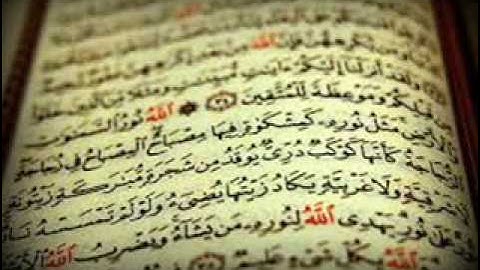 وَمَن يُكْرِههُّنَّ فَإِنَّ ٱللَّهَ مِنۢ بَعْدِ إِكْرَٰهِهِنَّ
وَلَقَدْ أَنزَلْنَآ إِلَيْكُمْ ءَايَٰتٍ مُّبَيِّنَٰتٍ وَمَثَلًا مِّنَ ٱلَّذِينَ خَلَوْا۟
قَبْلِكُمْ وَمَوْعِظَةً لِّلْمُتَّقِينَ ۞ ٱللَّهُ نُورُ ٱلسَّمَٰوَٰتِ
وَٱلْأَرْضِ مَثَلُ نُورِهِۦ كَمِشْكَوٰةٍ فِيهَا مِصْبَاحٌ ٱلْمِصْبَاحُ فِى زُجَاجَةٍ
ٱلزُّجَاجَةُ كَأَنَّهَا كَوْكَبٌ دُرِّىٌّ يُوقَدُ مِن شَجَرَةٍ مُّبَٰرَكَةٍ زَيْتُونَةٍ
شَرْقِيَّةٍ وَلَا غَرْبِيَّةٍ يَكَادُ زَيْتُهَا يُضِىٓءُ وَلَوْ لَمْ تَمْسَسْهُ نَارٌ
نُورٍ يَهْدِى ٱللَّهُ لِنُورِهِۦ مَن يَشَآءُ وَيَضْرِبُ ٱللَّهُ
ٱللَّهُ بِكُلِّ شَىْءٍ عَلِيمٌ